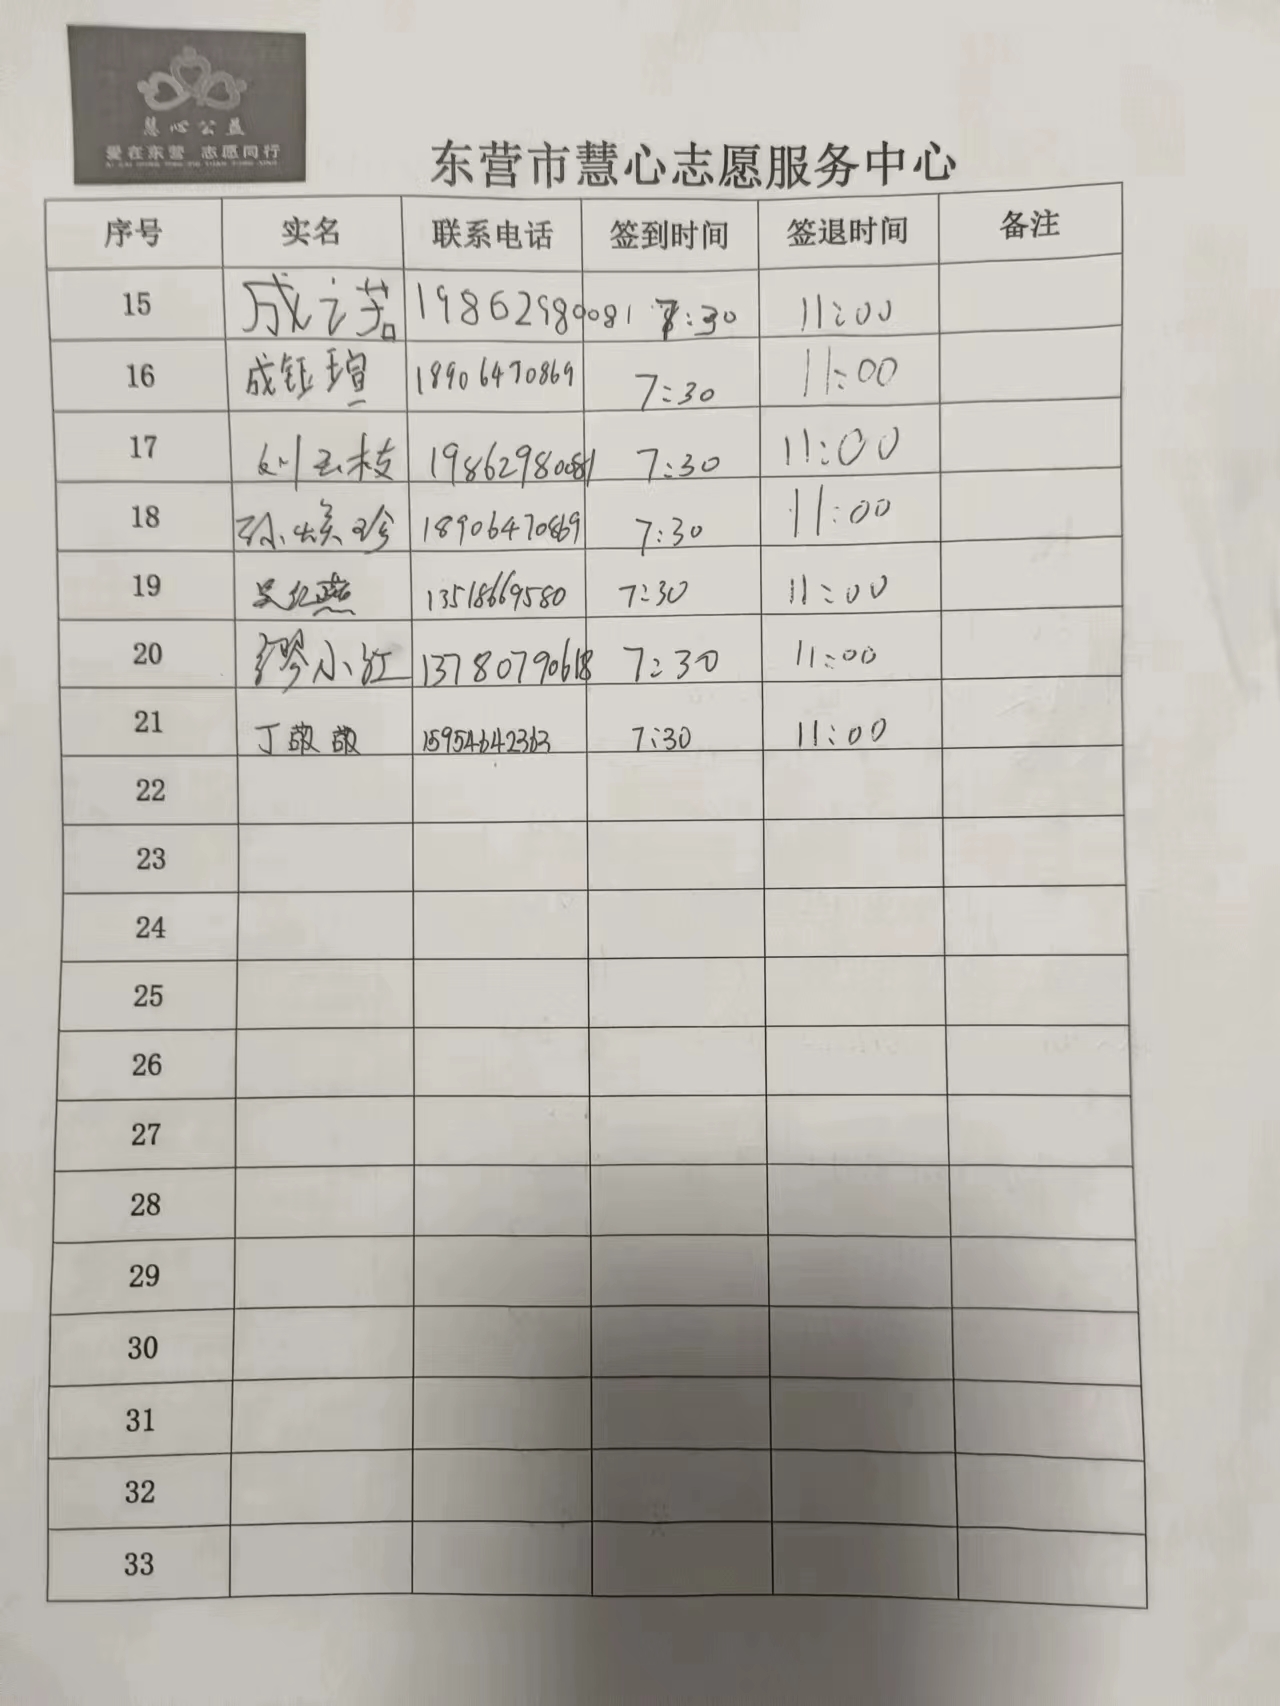 慧心公益
爱在东营 志愿同行
东营市慧心志愿服务中心
序号 实名 联系电话 签到时间 签退时间 备注
15 成之芸 19862980081 7:30 11:00
16 成钰瑄 18906470869 7:30 11:00
17 刘玉枝 19862980081 7:30 11:00
18 孙焕珍 18906470869 7:30 11:00
19 吴红燕 13518669580 7:30 11:00
20 缪小红 13780790618 7:30 11:00
21 丁敬敬 15954642363 7:30 11:00
22
23
24
25
26
27
28
29
30
31
32
33